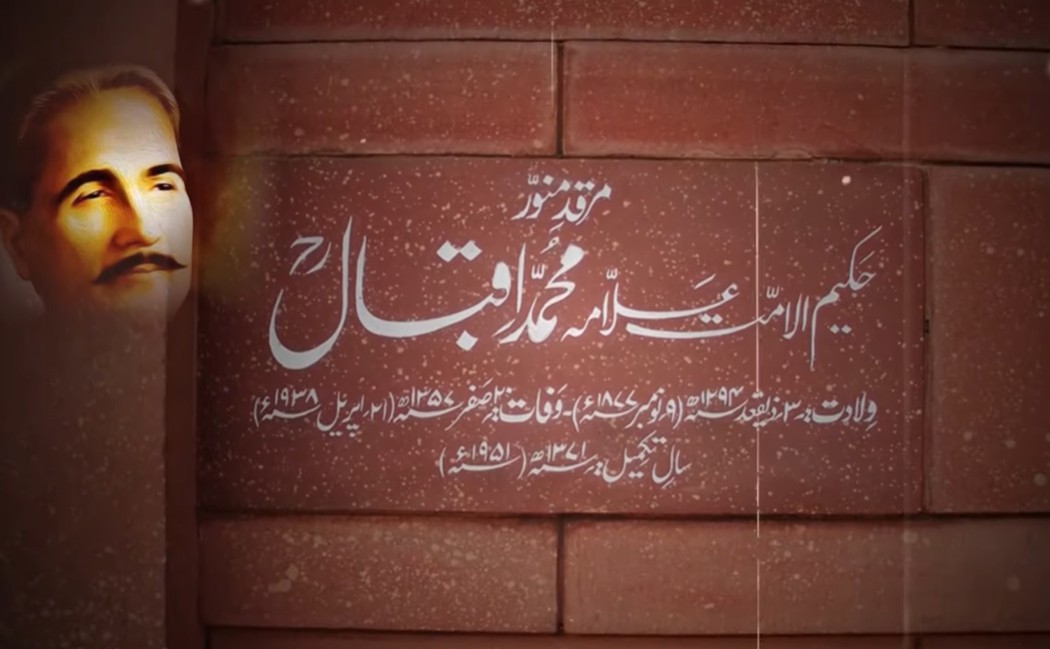 مرقدِ منوّر
حکیم الامّت علّامہ محمّد اقبال ؒ
ولادت: ۳۔ ذیقعد سنہ ۱۲۹۴ھ (۹ نومبر سنہ ۱۸۷۷ء)۔ وفات: ۲۰ صفر سنہ ۱۳۵۷ھ (۲۱۔ اپریل سنہ ۱۹۳۸ء)
سالِ تکمیل: سنہ ۱۳۷۱ھ (سنہ ۱۹۵۱ء)